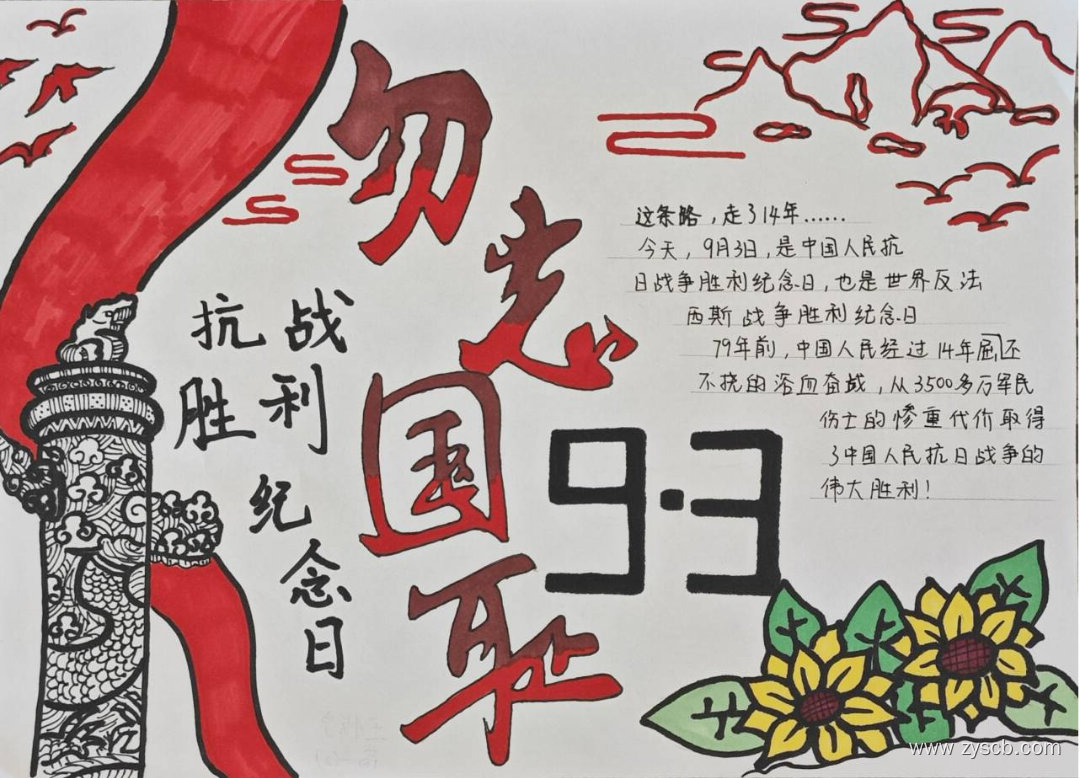 勿忘国耻
抗战
胜利
纪念日
9·3
这条路，走了14年……
今天，9月3日，是中国人民抗
日战争胜利纪念日，也是世界反法
西斯战争胜利纪念日
79年前，中国人民经过14年屈还
不挠的浴血奋战，从3500多万军民
伤士的惨重代价取得
了中国人民抗日战争的
伟大胜利！
www.zyscb.com